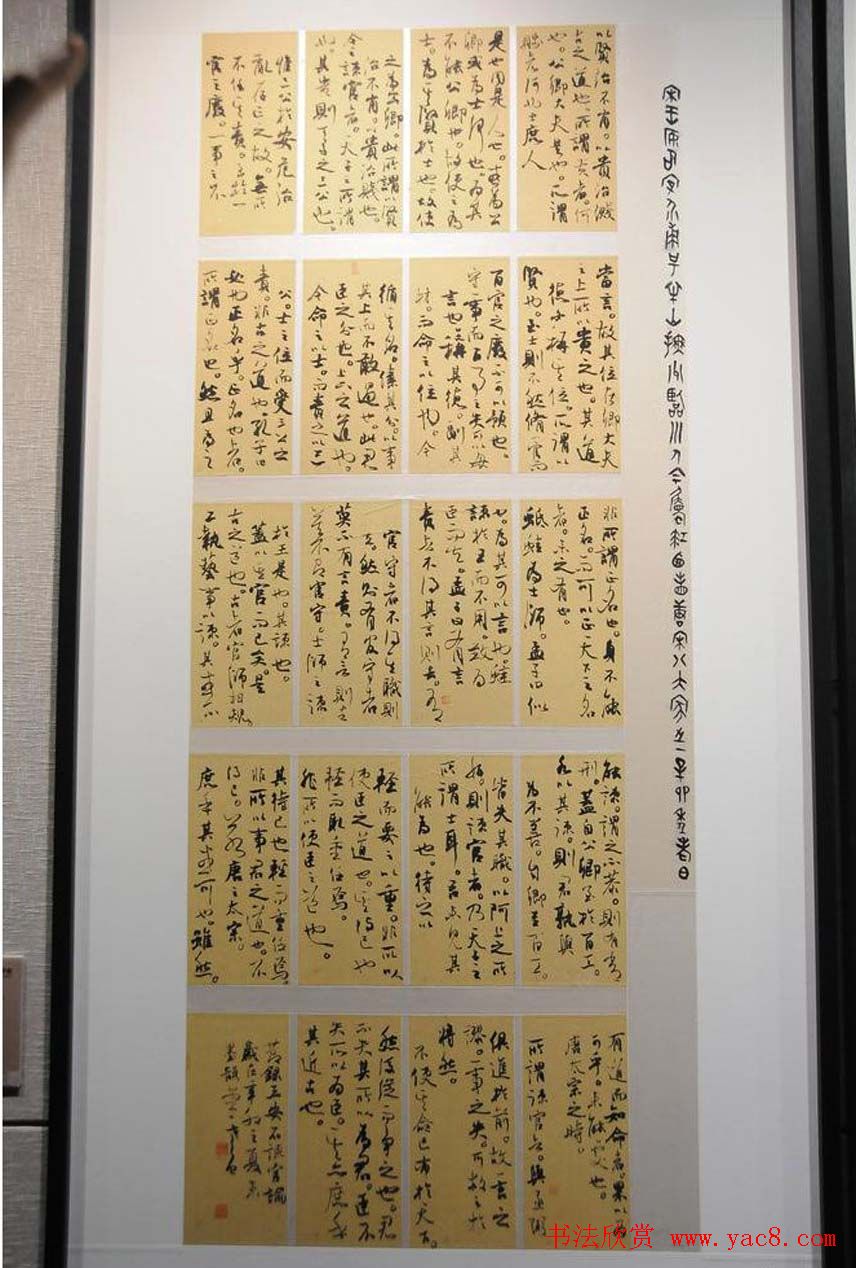 以賢治不肖。以貴治賤
古之道也。所謂貴者何
也。公卿大夫是也。所謂
賤者何也士庶人
是也同是人也。或為公
卿或為士何也。為其
不能公卿也。故使之為
士。為其賢於士也。故使
之為公卿。此所謂以賢
治不肖。以貴治賤也。
今之諫官者。天子之所謂
士也。其貴則天子之三公也。
惟三公於安危治
亂存亡之故。無所
不任其責。至於一
官之廢一事之不
當言。故其位在卿大夫
之上所以貴之也。其道
德必稱其位。所謂以
賢也。至士則不然脩一官而
百官之廢不可以預也。
守一事而百事之失可以毋
言也。稱其德。副其
材。而命之以位也。今
循其名。傃其分。以事
其上而不敢過也。此君
臣之分也。上下之道也。
今命之以士。而責之以三
公。士之位而受三公之
責。非古之道也。孔子曰
必也正名乎。正名也者。
所謂正名也。然且為之
非所謂正名也。身不能
正名。而可以正天下之名
者。未之有也。
蚳鼃為士師。孟子曰似
也。為其可以言也。鼃
諫於王而不用。致為
臣而去。孟子曰有言
責者不得其言則去。有
官守者不得其職則
去。然則有官守者
莫不有言責。有言責
者莫不有官守。士師之諫
於王是也。其諫也。
蓋以其官而已矣。是
古之道也。古者官師相規。
工執藝事以諫。其或不
能諫。謂之不恭。則有常
刑。蓋自公卿至於百工。
各以其諫。則君孰與
為不善。自公卿至百工。
皆失其職。以阿上之所
好。則諫官者。乃天子之
所謂士耳。吾未見其
能為也。待之以
輕而要之以重。非所以
使臣之道也。其待己也
輕而取重任焉。
非所以使臣之道也。
其待己也輕而重任焉。
非所以事君之道也。不
得已。若唐之太宗。
庶乎其或可也。雖然。
有道而知命者。果以為
可乎。未能處也。
唐太宗之時。
所謂諫官者。與丞弼
俱進於前。故一言之
謬。一事之失。可救之於
將然。
不使其命已布於天下。
然後從而爭之也。君
不失其所以為君。臣不
失其所以為臣。其亦庶乎
其近古也。
節錄王安石諫官論
书法欣赏 www.yac8.com